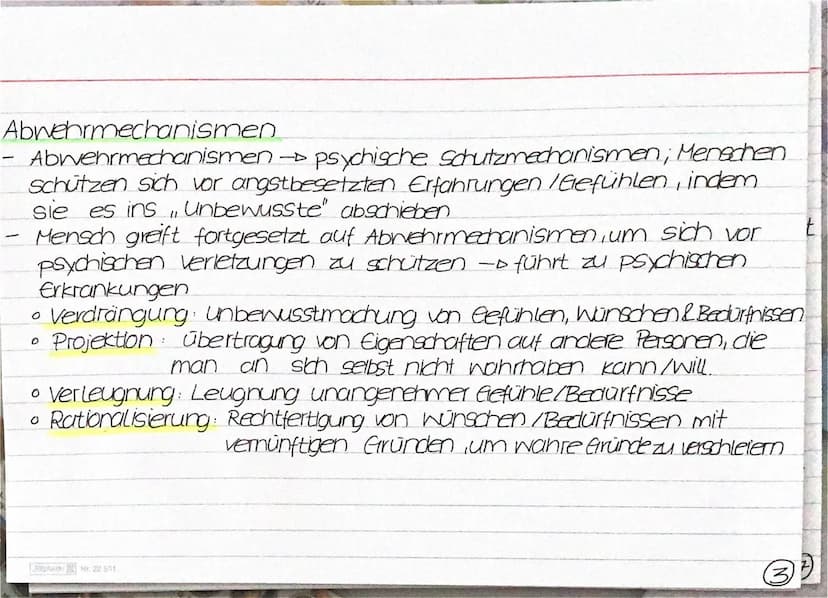 Abwehrmechanismen
- Abwehrmechanismen → psychische Schutzmechanismen; Menschen
schützen sich vor angstbesetzten Erfahrungen/Gefühlen, indem
sie es ins „Unbewusste" abschieben
- Mensch greift fortgesetzt auf Abwehrmechanismen, um sich vor
psychischen Verletzungen zu schützen → führt zu psychischen
Erkrankungen
◦ Verdrängung: Unbewusstmachung von Gefühlen, Wünschen & Bedürfnissen
◦ Projektion: Übertragung von Eigenschaften auf andere Personen, die
man an sich selbst nicht wahrhaben kann/will.
◦ Verleugnung: Leugnung unangenehmer Gefühle/Bedürfnisse
◦ Rationalisierung: Rechtfertigung von Wünschen/Bedürfnissen mit
vernünftigen Gründen, um wahre Gründe zu verschleiern
t
Nr. 22 501
3